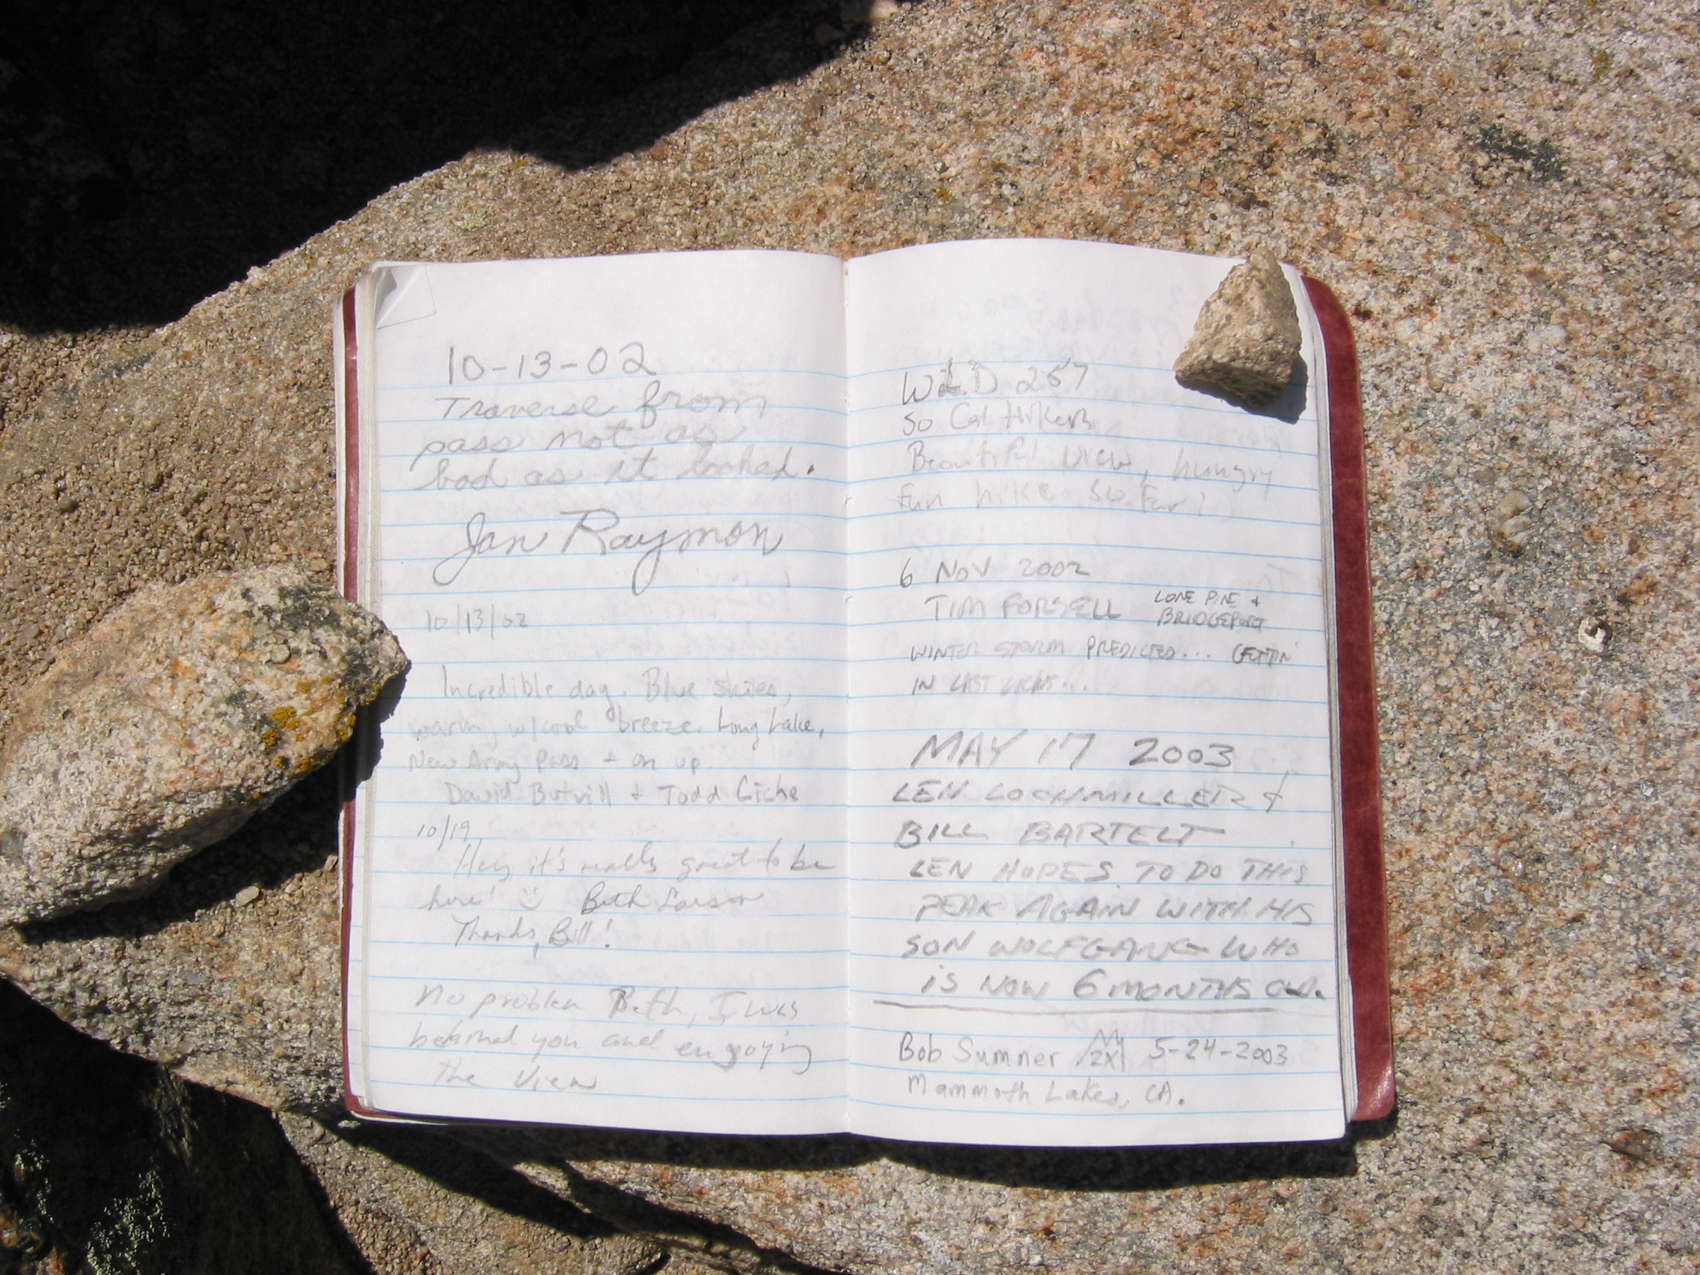 10-13-02
Traverse from
pass not as
bad as it looked.
Jan Raymon
10/13/02
Incredible day. Blue skies,
warm w/cool breeze. Long Lake,
New Army Pass + on up
David Botvill + Todd
10/19
Hey it's really great to be
here! Beth Larson
Thanks, Bill!
No problem Beth, I was
behind you and enjoying
the view
257
So Cal Hikers
Beautiful view, hungry
fun hike so far!
6 NOV 2002
TIM FORSELL LONE PINE +
BRIDGEPORT
WINTER STORM PREDICTED... GETTIN'
IN LAST LICKS...
MAY 17 2003
LEN LOCHMILLER &
BILL BARTELT
LEN HOPES TO DO THIS
PEAK AGAIN WITH HIS
SON WOLFGANG WHO
iS NOW 6 MONTHS OLD.
Bob Sumner 2X 5-24-2003
Mammoth Lakes, CA.